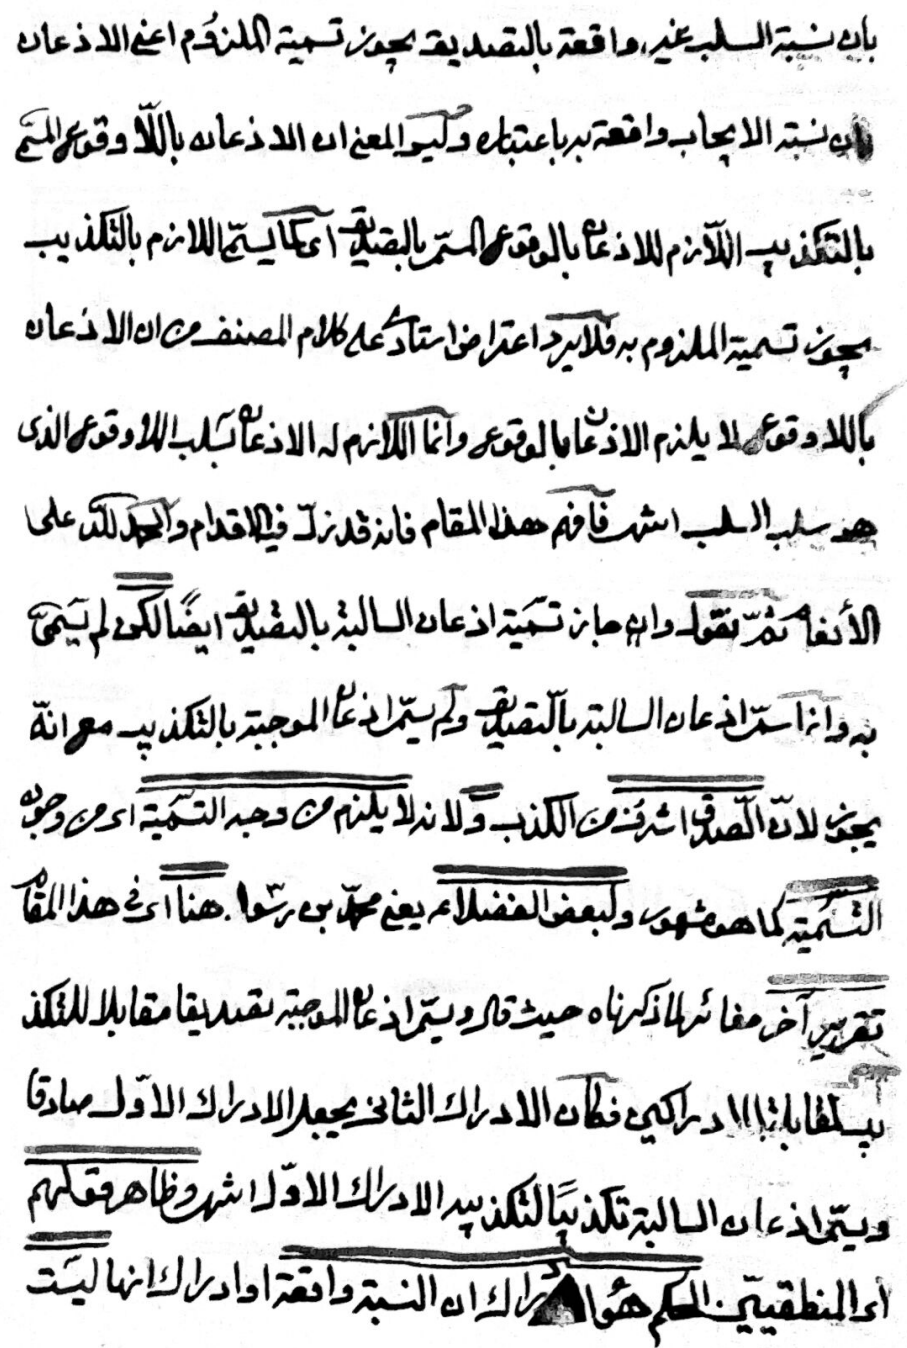 بان نسبة السلب غير واقعة بالتصديق يجوز تسمية الملزوم اعنى الاذعان
بان نسبة الايجاب واقعة به باعتباره وليس المعنى ان الاذعان باللّا وقوع المسمى
بالتكذيب اللّازم للاذعان بالوقوع المسمّى بالتصديق اى كما يسمّى اللازم بالتكذيب
يجوز تسمية الملزوم به فلا يرد اعتراض استاذى على كلام المصنف من ان الاذعان
باللا وقوع لا يلزم الاذعان بالوقوع وانما اللازم له الاذعان بسلب اللا وقوع الذى
هو سلب السلب انتهى فافهم هذا المقام فانه قد زلّ فيه الاقدام والحمد للّه على
الأنعام ثمّ نقول وان جاز تسمية اذعان السالبة بالتصديق ايضًا لكن لم يسمّى
به وانما سمّى اذعان السالبة بالتصديق ولم يسمّ اذعان الموجبة بالتكذيب مع انهّ
يجوز لانّ الصّدق اشرف من الكذب ولانه لا يلزم من وجه التّسمية اى من وجوه
التّسمية كما هو مشهور ولبعض الفضلاء يعنى محمّد بن رسّول هنا اى فى هذا المقام
تقرير آخر مغائر لما ذكرناه حيث قال ويسمّى اذعان الموجبة تصديقا مقابلا للتكذ
يب لمقابلة الادراكين فكان الادراك الثانى يجعل الادراك الاوّل صادقا
ويسمّى اذعان السالبة تكذيبًا لتكذيبه الادراك الاوّل انتهى وظاهر قولهم
أى المنطقييّن الحكم هو ادراك ان النسبة واقعة او ادراك انها ليست